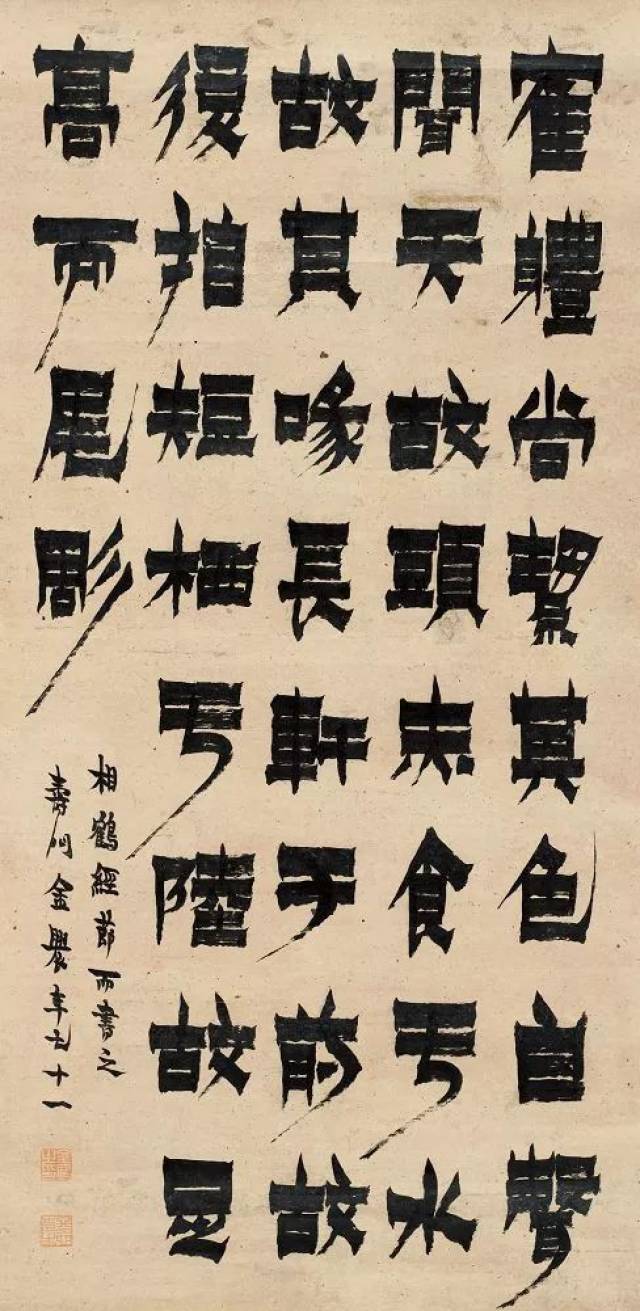 隺軆尚絜其色自聲
聞天故頭赤食亏水
故其喙長軒于前故
後指短栖亏陸故足
高而尾彫
相鶴經節而書之
壽門金農年七十一